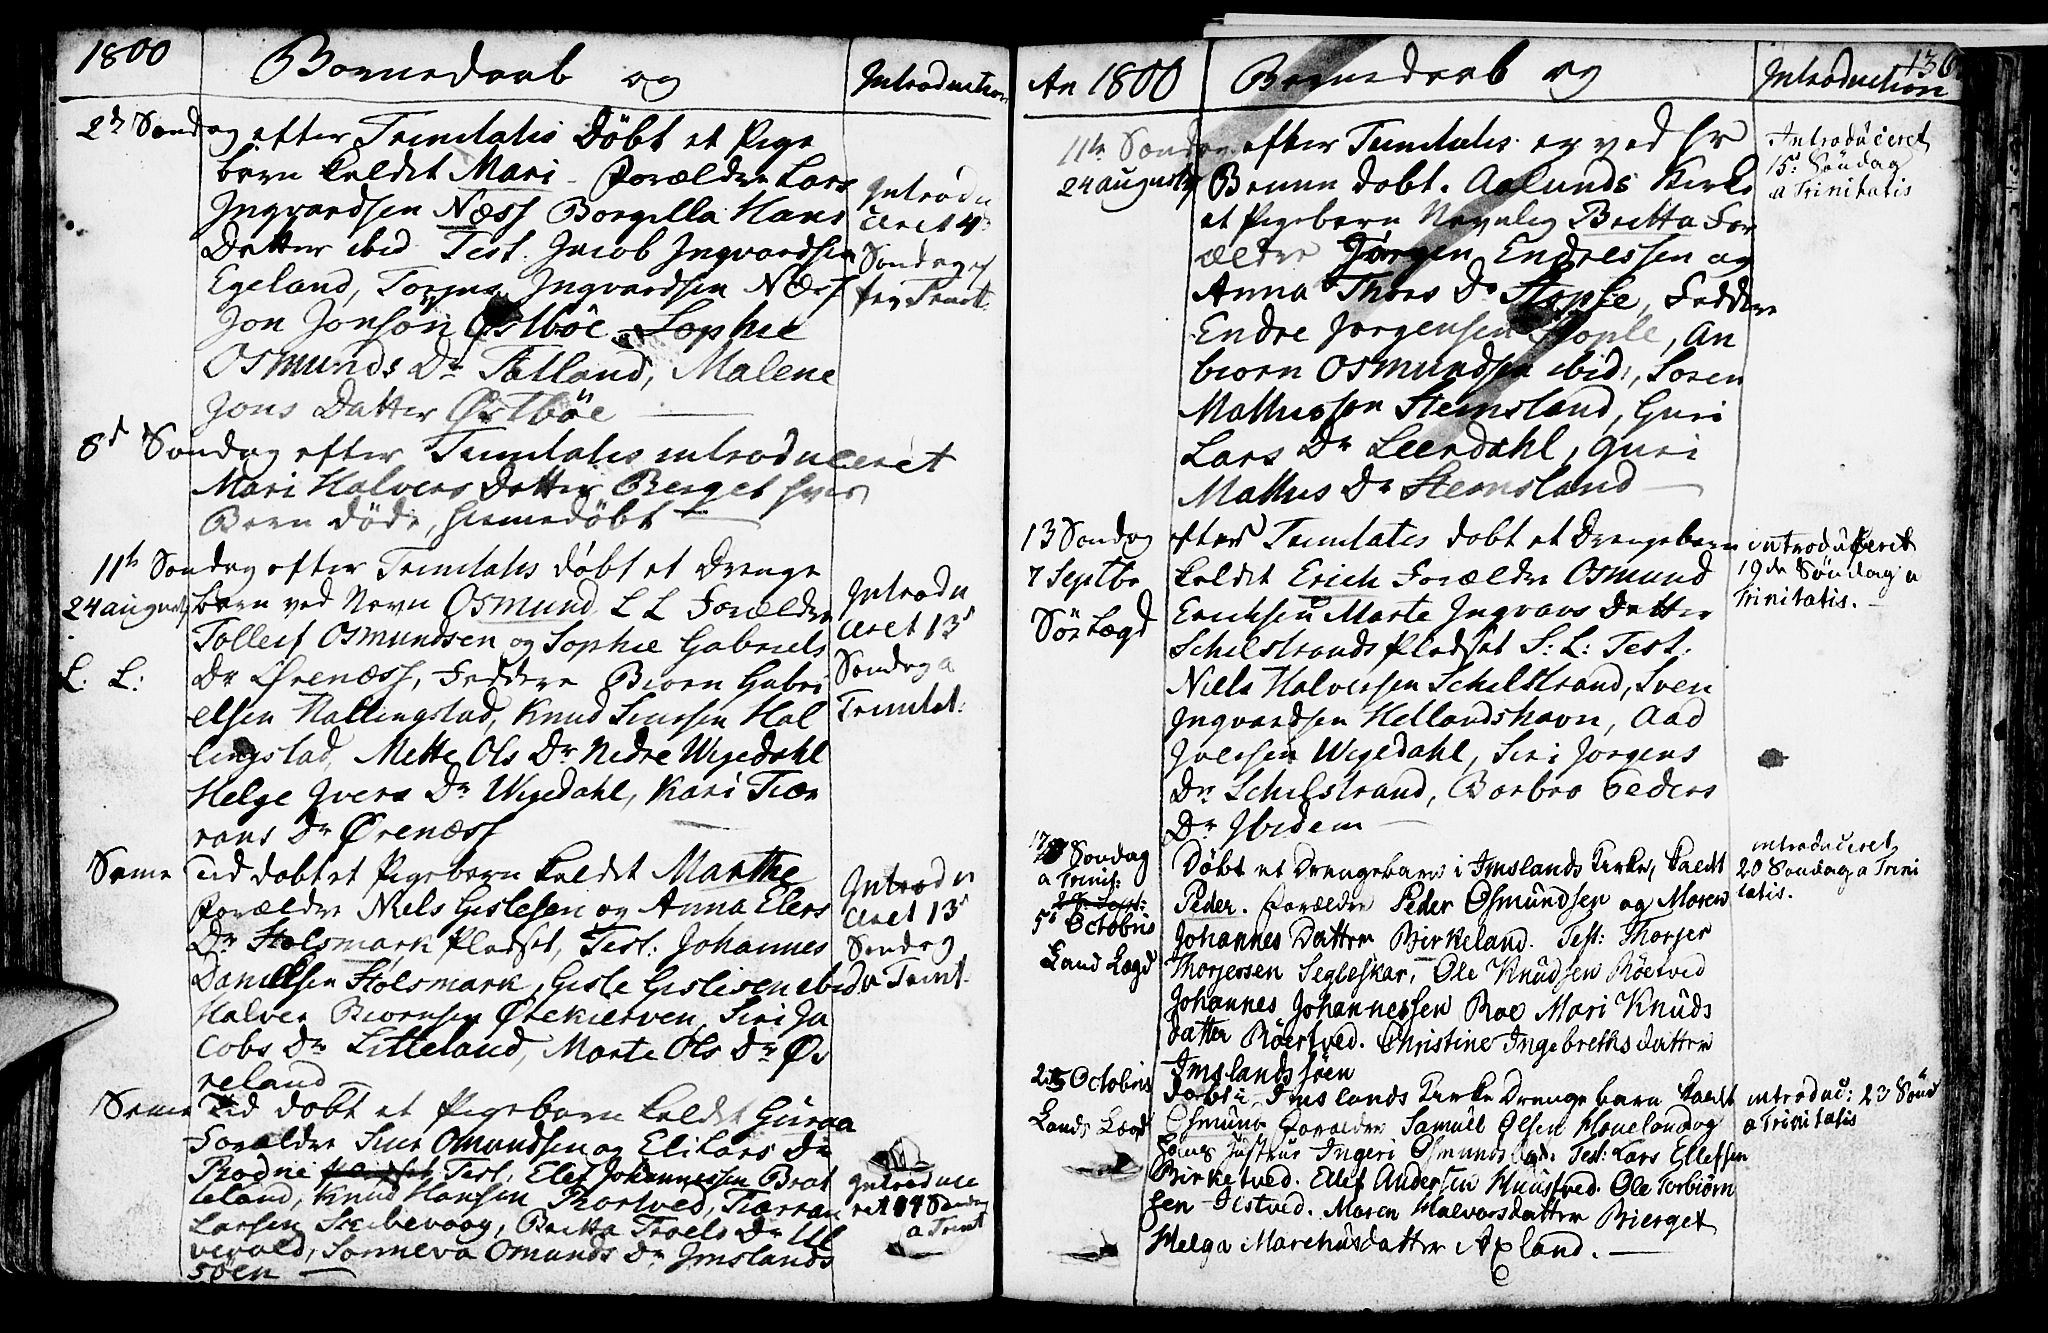 1800
Børnedaab og
Introduction
2den Søndag efter Trinitatis Døbt et Pige
barn kaldet Mari - Forældre Lars
Ingvardsen Næss Borgilla Hans
Datter ibid Test. Jacob Ingvardsen
Egeland, Torjus Ingvardsen Næss
Jon Jonsøn Østbøe Sophie
Osmunds Dr Tatland, Malene
Jons Datter Østbøe
Introdu
ceret 4de
Søndag ef
ter Trinit.
8d Søndag efter Trinitatis introduceret
Mari Halvors Datter Berget hvis
Barn døde, hiemedøbt
11te Søndag efter Trinitatis døbt et Drenge
24 augusty barn ved Navn Osmund L L Forældre
Tollef Osmundsen og Sophie Gabriels
L. L: Dr Ørenæss, Faddere Biørn Gabri
elsen Hallingstad, Knud Simsen Hal
lingstad, Mette Ols Dr Nedre Wigedahl
Helge Ivers Dr Wigedahl, Kari Tiær
rans Dr Ørenæss
Introdu
ceret 13d
Søndag a
Trinitat:
Same Tid døbt et Pigebarn kaldet Marthe
Forældre Niels Gislesen og Anna Elers
Dr Stolsmark Pladset, Test: Johannes
Danielsen Stolsmark, Gisle Gislesen ibid
Halvor Biørnsen Ørekierven, Siri Ja
cobs Dr Litleland, Marte Ols Dr Ø
reland
Introdu
ceret 13d
Søndag
a Trinit.
Same Tid døbt et Pigebarn kaldet Guroa
Forældre Simr Omundsen og Eli Lars Dr
Rodne Test. Elef Johannessen Brat
teland, Knud Hansen Thortved, Tiærran
Larsen Skibevaag, Britta Troels Dr Ul
vevold, Sønneva Omunds Dr Imslands
søen
Introduce
ret Søndag
a Trinit
An 1800
Børnedaab og
Introduction
136
11te Søndag efter Trinitatis og ved Hr
24 augusty Bruun døbt i Aalunds Kirke
et Pigebarn Navnlig Britta For
ældre Jørgen Endressen og
Anna Thors Dr Stople, Faddere
Endre Jørgensen Stople, An
biørn Osmundsen ibid:, Soren
Mathissen Stemsland, Guri
Lars Dr Leerdahl, Guri
Mathis Dr Stemsland
Introduceret
15d Søndag
a Trinitatis
13 Søndag efter Trinitatis døbt et Drengebarn
7 Septbr kaldet Erich Forældre Osmund
Sør Lægd Erichsen Marte Ingvars Datter
Schelstrands Pladset S: L: Test:
Niels Halversen Schelstrand, Sven
Ingvardsen Hellandshavn, Aad
Iversen Wigedahl, Siri Jørgens
Dr Schelstrand, Barbro Peders
Dr Ibidem
introduceret
19de Søndag a
Trinitatis.
17 Søndag
a Trinit:
5te Octobris
Land Lægd
Døbt et Drengebarn i Imslands Kirke, kaldt
Peder. Forældre Peder Osmundsen og Maren
Johannes Datter Birkeland. Test: Thorger
Thorjersen Segleskar, Ole Knudsen Røetved
Johannes Johannessen Roe Mari Knuds
datter Røertved. Christine Ingebreths datter
Imslandssøen
introduceret
20 Søndag a Trini
tatis.
Octobris
Lands Lægd
Døbt i Imslands Kirke Drengebarn kaldt
Osmund Forældre Samuel Olsen Haveland og
Ingeri Osmunds Test: Lars Ellefsen
Birketved. Ellef Andersen Knustved. Ole Torbiørn
sen Jistved. Maren Halvorsdatter Bierget
Helga Marchusdatter Axland.
introduc: 23 Sønd
a Trinitatis